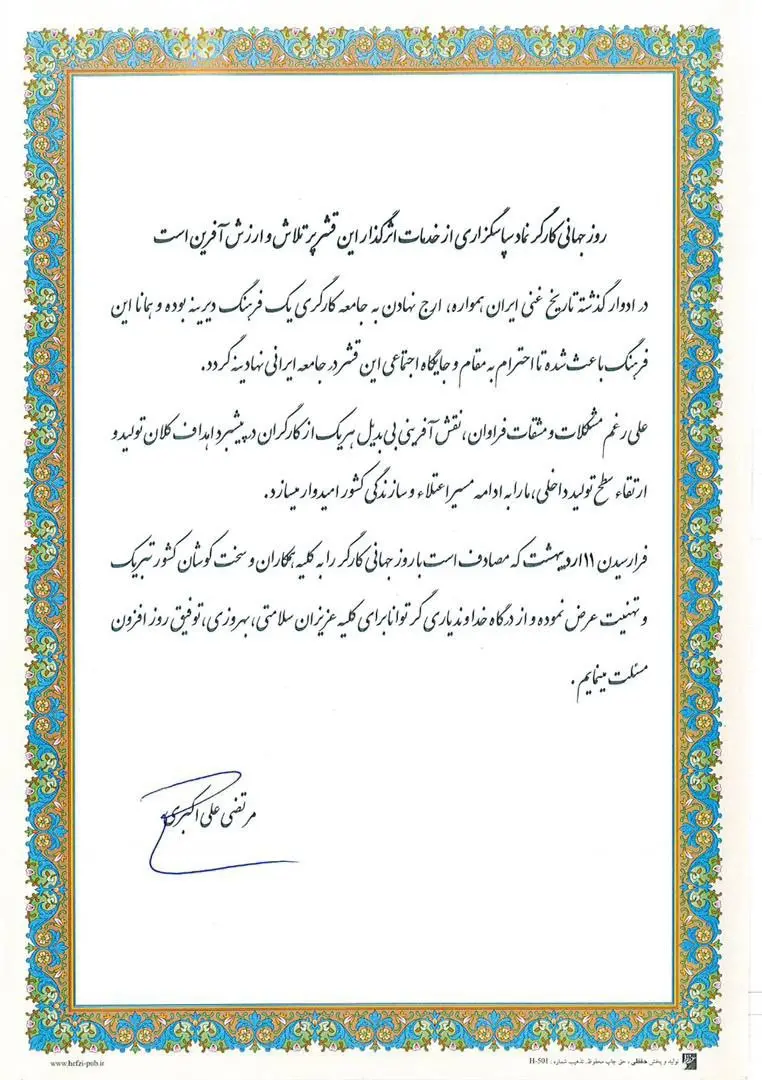 روز جهانی کارگر نماد سپاسگزاری از خدمات اثرگذار این قشر پر تلاش و ارزش آفرین است
در ادوار گذشته تاریخ غنی ایران همواره، ارج نهادن به جامعه کارگری یک فرهنگ دیرینه بوده و همانا این
فرهنگ باعث شده تا احترام به مقام و جایگاه اجتماعی این قشر در جامعه ایرانی نهادینه گردد.
علی رغم مشکلات و مشقات فراوان، نقش آفرینی بی بدیل هریک از کارگران در پیشبرد اهداف کلان تولید و
ارتقاء سطح تولید داخلی، ما را به ادامه مسیر اعتلاء و سازندگی کشور امیدوار میسازد.
فرارسیدن ۱۱ اردیبهشت که مصادف است با روز جهانی کارگر را به کلیه همکاران و سخت کوشان کشور تبریک
و تهنیت عرض نموده و از درگاه خداوند یاری گر توانا برای کلیه عزیزان سلامتی، بهروزی، توفیق روز افزون
مسئلت مینمایم.
مرتضی علی اکبری
www.hefzi-pub.ir
تولید و پخش حفظی، حق چاپ محفوظ. تذهیب شماره: H-501